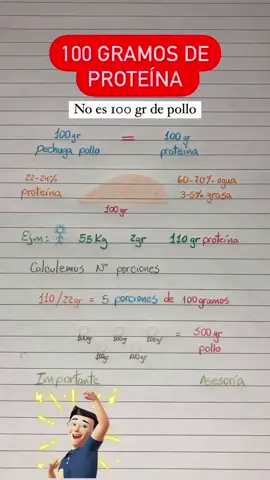 100 GRAMOS DE
PROTEÍNA
No es 100 gr de pollo
100gr = 100gr
pechuga pollo proteína
22-24% 60-70% agua
proteína 3-5% grasa
100gr
Ejm: 55Kg 2gr 110gr proteína
Calculemos N° porciones
110/22gr = 5 porciones de 100gramos
100gr 100gr 100gr = 500gr
100gr 100gr pollo
Importante Asesoría